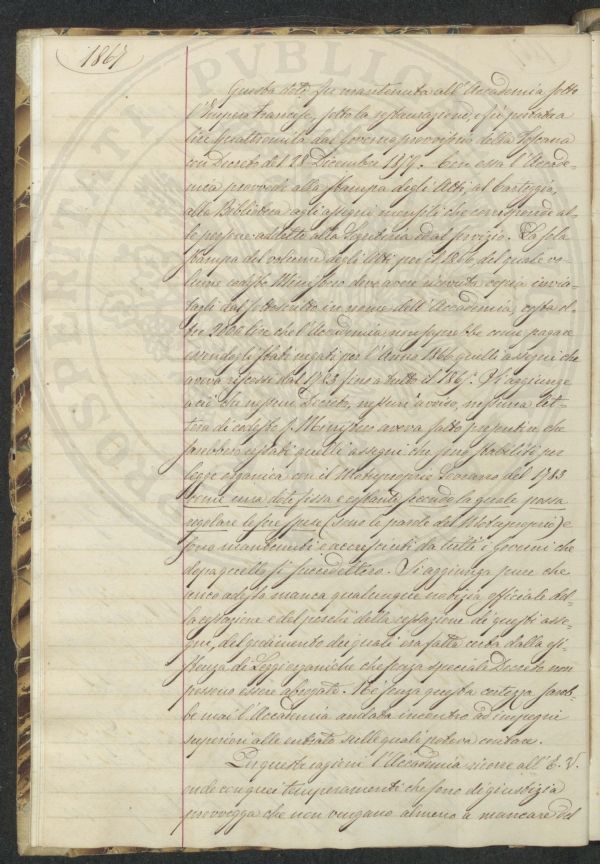 1867
Questa dote fu mantenuta all'Accademia sotto
l'Impero Francese, sotto la restaurazione, e fu portata a
lire quattromila dal Governo provvisorio della Toscana
con Decreto del 28 Dicembre 1859. Con essa l'Accade=
mia provvede alla stampa degli Atti, al Carteggio,
alla Biblioteca agli assegni mensili che corrisponde al=
le persone addette alla Segreteria ed al servizio. La sola
stampa del volume degli Atti per il 1866, del quale vo=
lume codesto Ministero deve avere ricevuta copia invia=
tagli dal sottoscritto in nome dell'Accademia, costa ol=
tre 2000 lire che l'Accademia non saprebbe come pagare
essendogli stati negati per l'Anno 1866 quelli assegni che
aveva riscossi dal 1783 fino a tutto il 1865. Si aggiunge
a ciò che nessun Decreto, nessun avviso, nessuna let=
tera di codesto Ministero aveva fatto presentire che
sarebbero cessati quelli assegni che sono stabiliti per
legge organica con il Motuproprio Sovrano del 1783
come una dote fissa e costante secondo la quale possa
regolare le sue spese (sono le parole del Motuproprio) e
sono mantenuti e accresciuti da tutti i Governi che
dopo quello si succedettero. Si aggiunga pure che
fino ad ora manca qualunque notizia officiale del=
la cessazione e del perchè della cessazione di questi asse=
gni, del godimento dei quali era fatta certa dalla esi=
stenza di Leggi organiche che senza speciale Decreto non
possono essere abrogate. Nè senza questa certezza sareb=
be mai l'Accademia andata incontro ad impegni
superiori alle entrate sulle quali poteva contare.
Per queste ragioni l'Accademia ricorre all'E. V.
onde con quei temperamenti che sono di giustizia
provvegga che non vengano almeno a mancare del